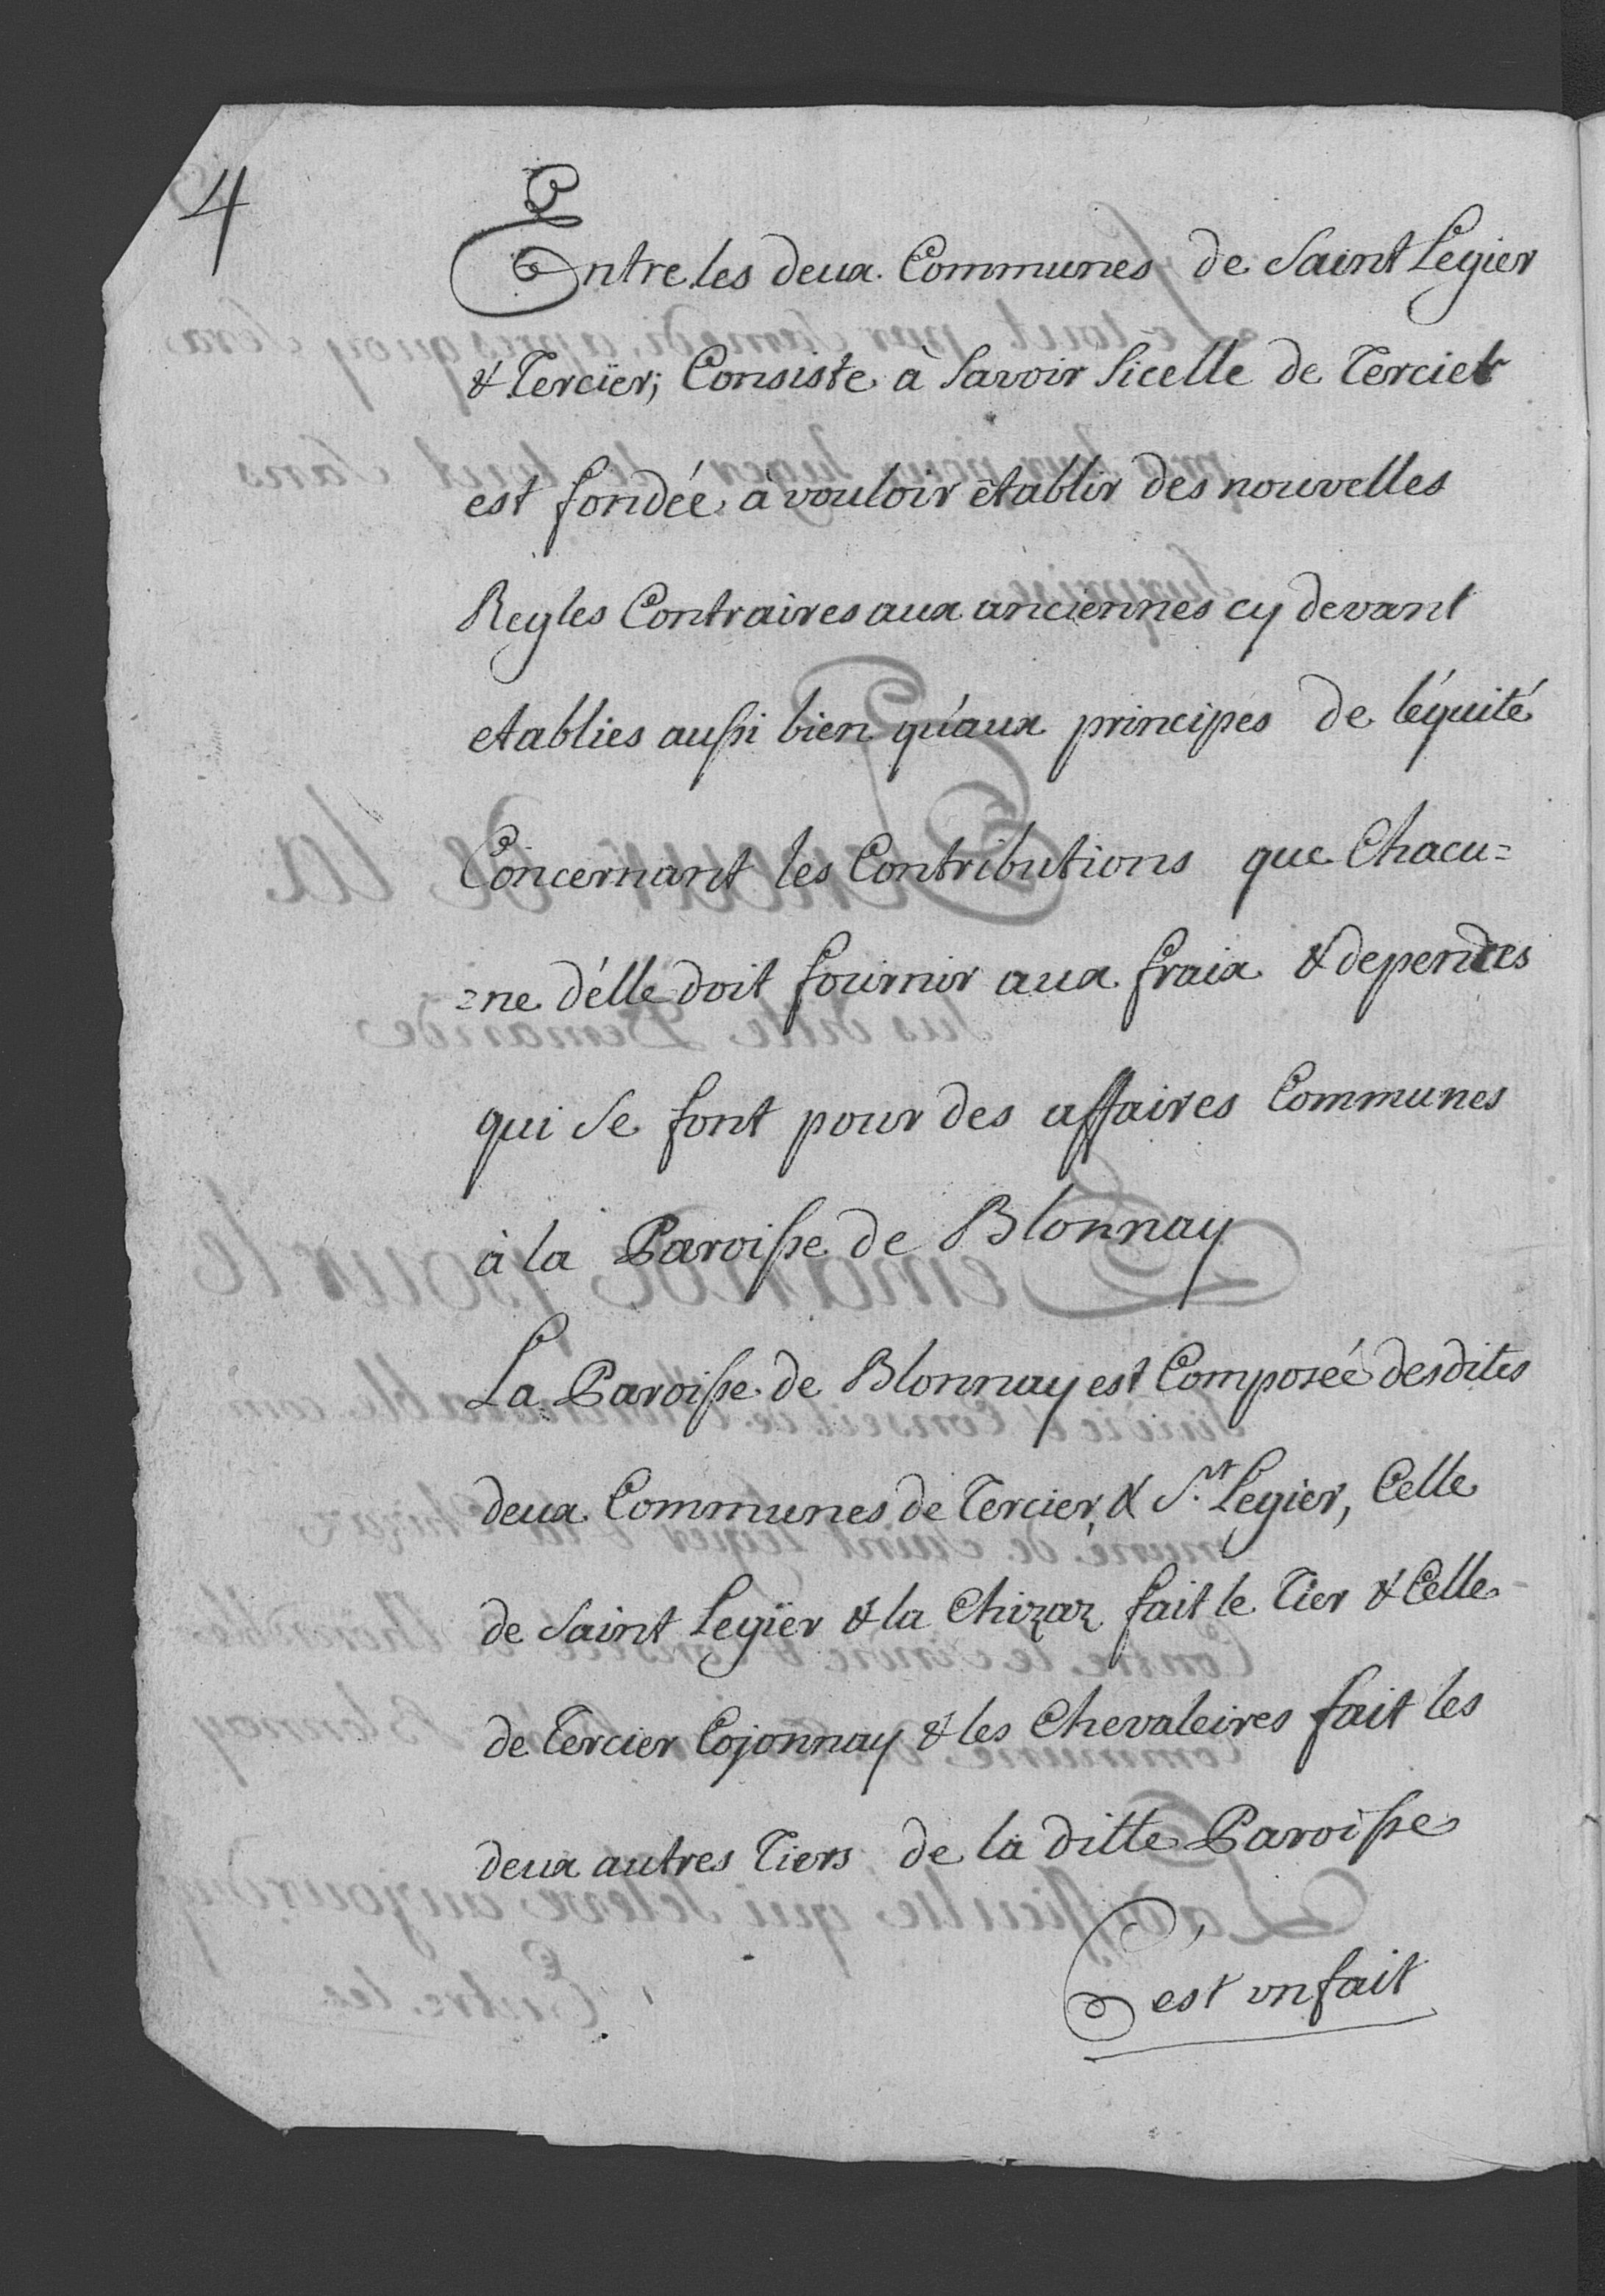 4
Entre les deux Communes de Saint Legier
& Tercier; Consiste à Savoir Sicelle de Tercier
est fondée à vouloir établir des nouvelles
Regles Contraires aux anciennes cy devant
etablies aussi bien qu'aux principes de léquité
Concernant les Contributions que Chacu=
=ne d'élle doit fournir aux fraix & depences
qui Se font pour des affaires Communes
à la Paroisse de Blonnay
La Paroisse de Blonnay est Composée desdites
deux Communes de Tercier, & St. Legier, Celle
de Saint Legier & la Chizaz fait le Tier & Celle
de Tercier Cojonnay & les Chevaleires fait les
deux autres Tiers de la ditte Paroisse
C'est un fait